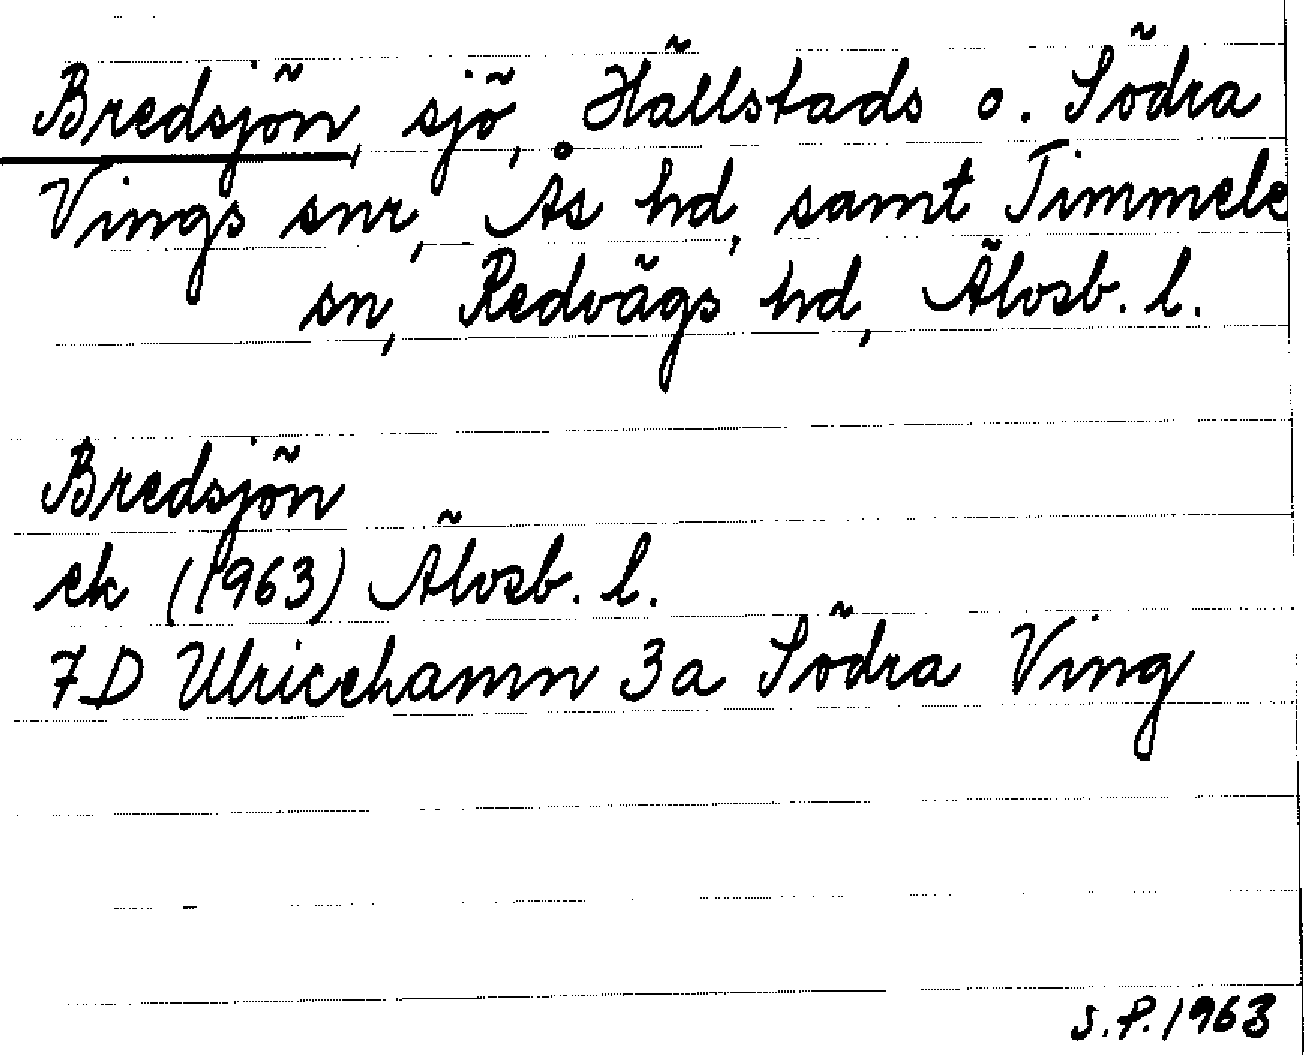 Bredsjön, sjö, Hällstads o. Södra
Vings snr, Ås hd, samt Timmele
sn, Redvägs hd, Älvsb. l.
Bredsjön
ek (1963) Älvsb. l.
7D Ulricehamn 3a Södra Ving
S.P. 1963